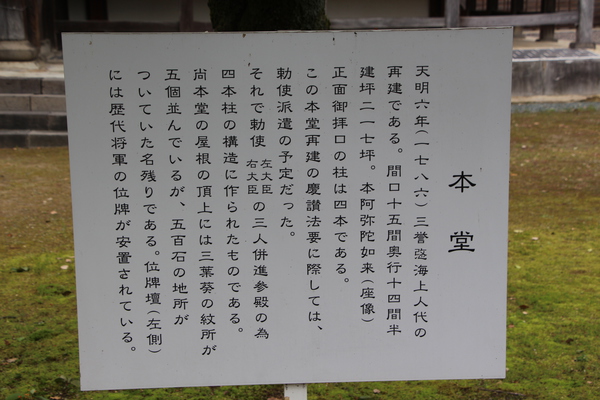 本堂
天明六年(一七八六)三誉蓫海上人代の
再建である。間口十五間奥行十四間半
建坪二一七坪。本阿弥陀如来(座像)
正面御拝口の柱は四本である。
この本堂再建の慶讃法要に際しては、
勅使派遣の予定だった。
それで勅使 左大臣 右大臣 の三人併進参殿の為
四本柱の構造に作られたものである。
尚本堂の屋根の頂上には三葉葵の紋所が
五個並んでいるが、五百石の地所が
ついていた名残りである。位牌壇(左側)
には歴代将軍の位牌が安置されている。